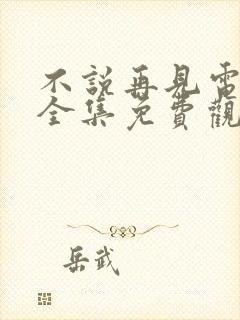 不說再見電
全集免費觀
岳武